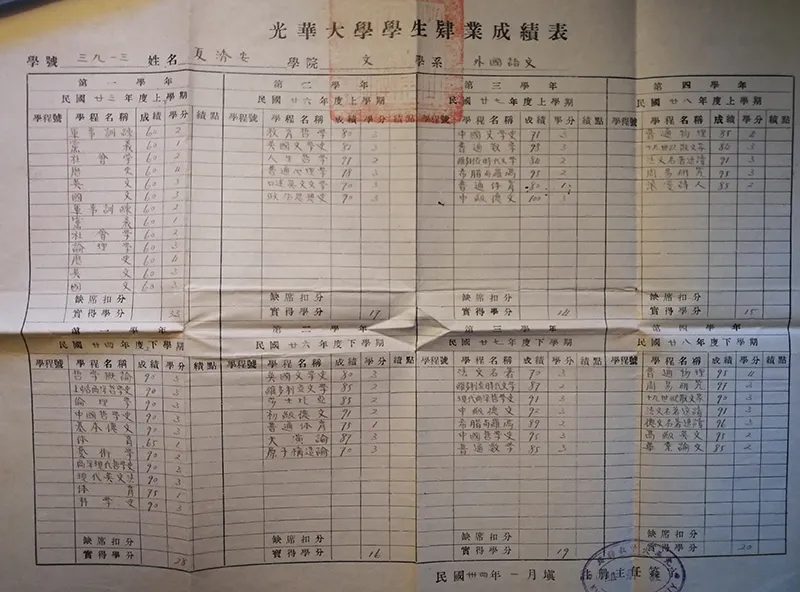 光華大學學生肄業成績表
學號 三九一三 姓名 夏濟安 學院 文 學系 外國語文
第一學年 第二學年 第三學年 第四學年
民國廿三年度上學期 民國廿六年度上學期 民國廿七年度上學期 民國廿八年度上學期
學程號 學程名稱 成績 學分 績點 學程號 學程名稱 成績 學分 績點 學程號 學程名稱 成績 學分 績點 學程號 學程名稱 成績 學分 績點
軍事訓練 60 2 教育哲學 中國文學史 91 3 普通物理 85 4
黨義 60 1 英國文學史 普通數學 95 3 十九世紀散文 86 3
社會學 60 2 人生哲學 91 2 維多利亞時代文學 86 2 法文名著選讀 91 3
歷史 60 4 普通心理學 3 希臘而羅馬 95 2 周易研究 90 3
英文 60 3 英文文學 90 3 普通體育 80 1 浪漫詩人 85 2
國文 60 3 政治思想史 90 3 中級德文 100 3
軍事訓練 60 2
黨義 60 1
社會學 60 2
論理學 60 3
歷史 60 4
英文 60 3
國文 60 3
缺席扣分 缺席扣分 缺席扣分 缺席扣分
實得學分 33 實得學分 17 實得學分 14 實得學分 15
第一學年 第二學年 第三學年 第四學年
民國廿四年度下學期 民國廿六年度下學期 民國廿七年度下學期 民國廿八年度下學期
學程號 學程名稱 成績 學分 績點 學程號 學程名稱 成績 學分 績點 學程號 學程名稱 成績 學分 績點 學程號 學程名稱 成績 學分 績點
哲學概論 90 3 英國文學史 80 3 法文名著 90 3 普通物理 95 4
西洋哲學史 90 3 維多利亞文學 85 2 維多利亞時代文學 87 2 周易研究 91 3
倫理學 90 3 莎士比亞 85 2 現代西洋哲學 91 3 十九世紀散文 90 3
中國哲學史 90 3 初級德文 91 2 中級德文 92 3 法文名著選讀 91 3
基本德文 90 3 普通體育 75 1 希臘而羅馬 89 2 德文名著選讀 96 3
體育 65 1 大學論 87 3 中國哲學史 95 3 高級英文 95 2
藝術學 90 2 原子構造論 90 3 普通數學 85 3 畢業論文 85 2
西洋現代哲學 90 3
現代英文法 90 3
體育 75 1
科學史 90 3
缺席扣分 缺席扣分 缺席扣分 缺席扣分
實得學分 28 實得學分 16 實得學分 19 實得學分 20
民國卅四年一月填 註冊主任簽字